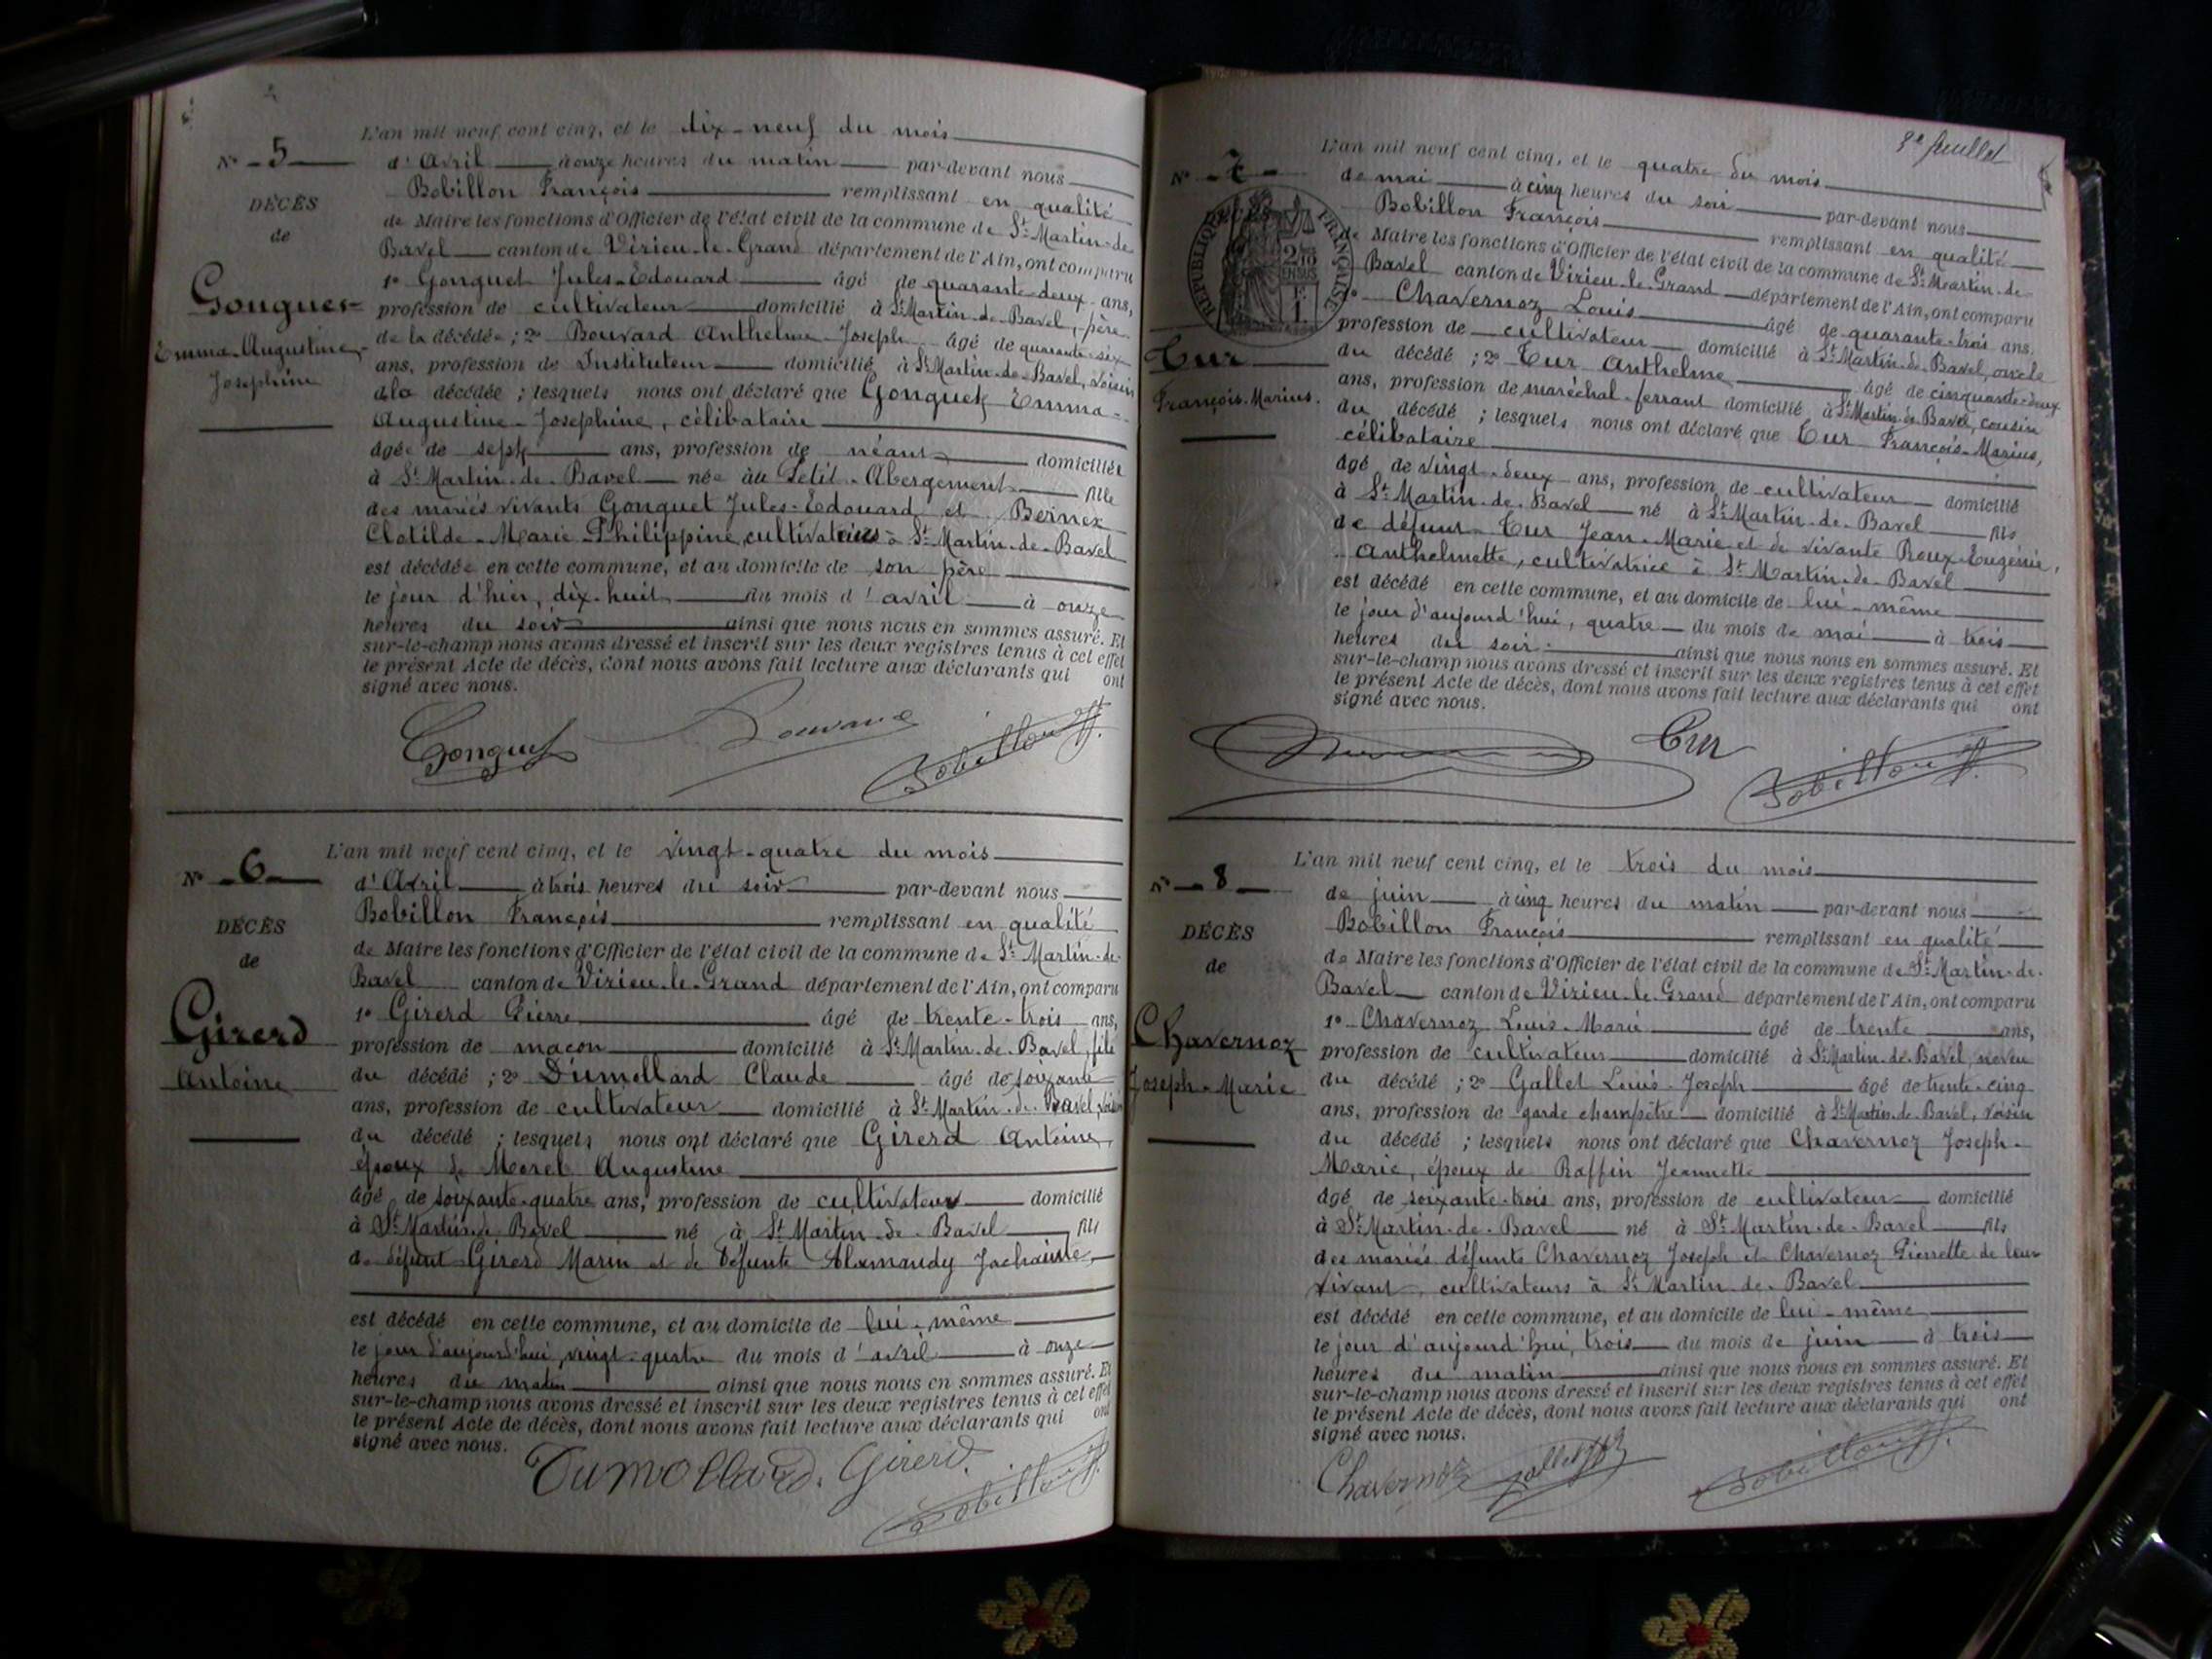 L'an mil neuf cent cinq, et le dix-neuf du mois
N° 5
d'Avril à onze heures du matin par-devant nous
Bobillon François remplissant en qualité
DÉCÈS
de Maire les fonctions d'Officier de l'état civil de la commune de St Martin-de
de
Bavel canton de Virieu-le-Grand département de l'Ain, ont comparu
1° Gonguet Jules-Edouard âgé de quarante-deux ans,
Gonguet
profession de cultivateur domicilié à St Martin-de-Bavel, père
de la décédée ; 2° Bouvard Anthelme-Joseph âgé de quarante-six
Emma-Augustine
ans, profession de Instituteur domicilié à St Martin-de-Bavel, voisin
Josephine
de la décédée ; lesquels nous ont déclaré que Gonguet Emma-
Augustine-Josephine, célibataire
âgée de sept ans, profession de néant domiciliée
à St Martin-de-Bavel née au Petit-Abergement fille
des mariés vivants Gonguet Jules-Edouard et Bernex
Clotilde-Marie-Philippine, cultivateurs à St Martin-de-Bavel
est décédée en cette commune, et au domicile de son père
le jour d'hier, dix-huit du mois d'avril à onze
heures du soir ainsi que nous nous en sommes assuré. Et
sur-le-champ nous avons dressé et inscrit sur les deux registres tenus à cet effet
le présent Acte de décès, dont nous avons fait lecture aux déclarants qui ont
signé avec nous.
Gonguet Bouvard Bobillon F.
L'an mil neuf cent cinq, et le vingt-quatre du mois
N° 6
d'Avril à trois heures du soir par-devant nous
Bobillon François remplissant en qualité
DÉCÈS
de Maire les fonctions d'Officier de l'état civil de la commune de St Martin-de-
de
Bavel canton de Virieu-le-Grand département de l'Ain, ont comparu
1° Girerd Pierre âgé de trente-trois ans,
Girerd
profession de maçon domicilié à St Martin-de-Bavel, fils
Antoine
du décédé ; 2° Dumollard Claude âgé de soixante
ans, profession de cultivateur domicilié à St Martin-de-Bavel, voisin
du décédé ; lesquels nous ont déclaré que Girerd Antoine,
époux de Morel Augustine
âgé de soixante-quatre ans, profession de cultivateur domicilié
à St Martin-de-Bavel né à St Martin-de-Bavel fils
de défunt Girerd Marin et de défunte
est décédé en cette commune, et au domicile de lui-même
le jour d'aujourd'hui, vingt-quatre du mois d'avril à onze
heures du matin ainsi que nous nous en sommes assuré. Et
sur-le-champ nous avons dressé et inscrit sur les deux registres tenus à cet effet
le présent Acte de décès, dont nous avons fait lecture aux déclarants qui ont
signé avec nous.
Dumollard. Girerd. Bobillon F.
3e feuillet
L'an mil neuf cent cinq, et le quatre du mois
N° 7
de mai à cinq heures du soir par-devant nous
DÉCÈS
RÉPUBLIQUE FRANÇAISE
2/10 EN SUS
Bobillon François remplissant en qualité
de Maire les fonctions d'Officier de l'état civil de la commune de St Martin-de-
Bavel canton de Virieu-le-Grand département de l'Ain, ont comparu
1° Chavernoz Louis âgé de quarante-trois ans,
profession de cultivateur domicilié à St Martin-de-Bavel, oncle
Tur
du décédé ; 2° Tur Anthelme âgé de cinquante-deux
François-Marius.
ans, profession de maréchal-ferrant domicilié à St Martin-de-Bavel, cousin
du décédé ; lesquels nous ont déclaré que Tur François-Marius,
célibataire
âgé de vingt-deux ans, profession de cultivateur domicilié
à St Martin-de-Bavel né à St Martin-de-Bavel fils
de défunt Tur Jean-Marie et de vivante Roux Eugénie,
Anthelmette, cultivatrice à St Martin-de-Bavel
est décédé en cette commune, et au domicile de lui-même
le jour d'aujourd'hui, quatre du mois de mai à trois
heures du soir ainsi que nous nous en sommes assuré. Et
sur-le-champ nous avons dressé et inscrit sur les deux registres tenus à cet effet
le présent Acte de décès, dont nous avons fait lecture aux déclarants qui ont
signé avec nous.
Tur Bobillon F.
L'an mil neuf cent cinq, et le trois du mois
N° 8
de juin à cinq heures du matin par-devant nous
Bobillon François remplissant en qualité
DÉCÈS
de Maire les fonctions d'Officier de l'état civil de la commune de St Martin-de-
de
Bavel canton de Virieu-le-Grand département de l'Ain, ont comparu
1° Chavernoz Louis-Marie âgé de trente ans,
Chavernoz
profession de cultivateur domicilié à St Martin-de-Bavel, neveu
Joseph-Marie
du décédé ; 2° Gallet Louis-Joseph âgé de trente-cinq
ans, profession de garde champêtre domicilié à St Martin-de-Bavel, voisin
du décédé ; lesquels nous ont déclaré que Chavernoz Joseph-
Marie, époux de Raffin Jeannette
âgé de soixante-trois ans, profession de cultivateur domicilié
à St Martin-de-Bavel né à St Martin-de-Bavel fils
des mariés défunts Chavernoz Joseph et Chavernoz Pierrette de leur
vivant, cultivateurs à St Martin-de-Bavel
est décédé en cette commune, et au domicile de lui-même
le jour d'aujourd'hui, trois du mois de juin à trois
heures du matin ainsi que nous nous en sommes assuré. Et
sur-le-champ nous avons dressé et inscrit sur les deux registres tenus à cet effet
le présent Acte de décès, dont nous avons fait lecture aux déclarants qui ont
signé avec nous.
Chavernoz Gallet Bobillon F.